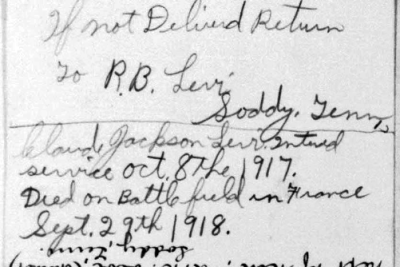 If not Deliverd Return
To R.B. Levi
Soddy, Tenn,
Claud, Jackson Levi. Interd
service oct, 8the 1917.
Died on Battlefield in France
Sept. 29th 1918.
Soddy, Tenn.